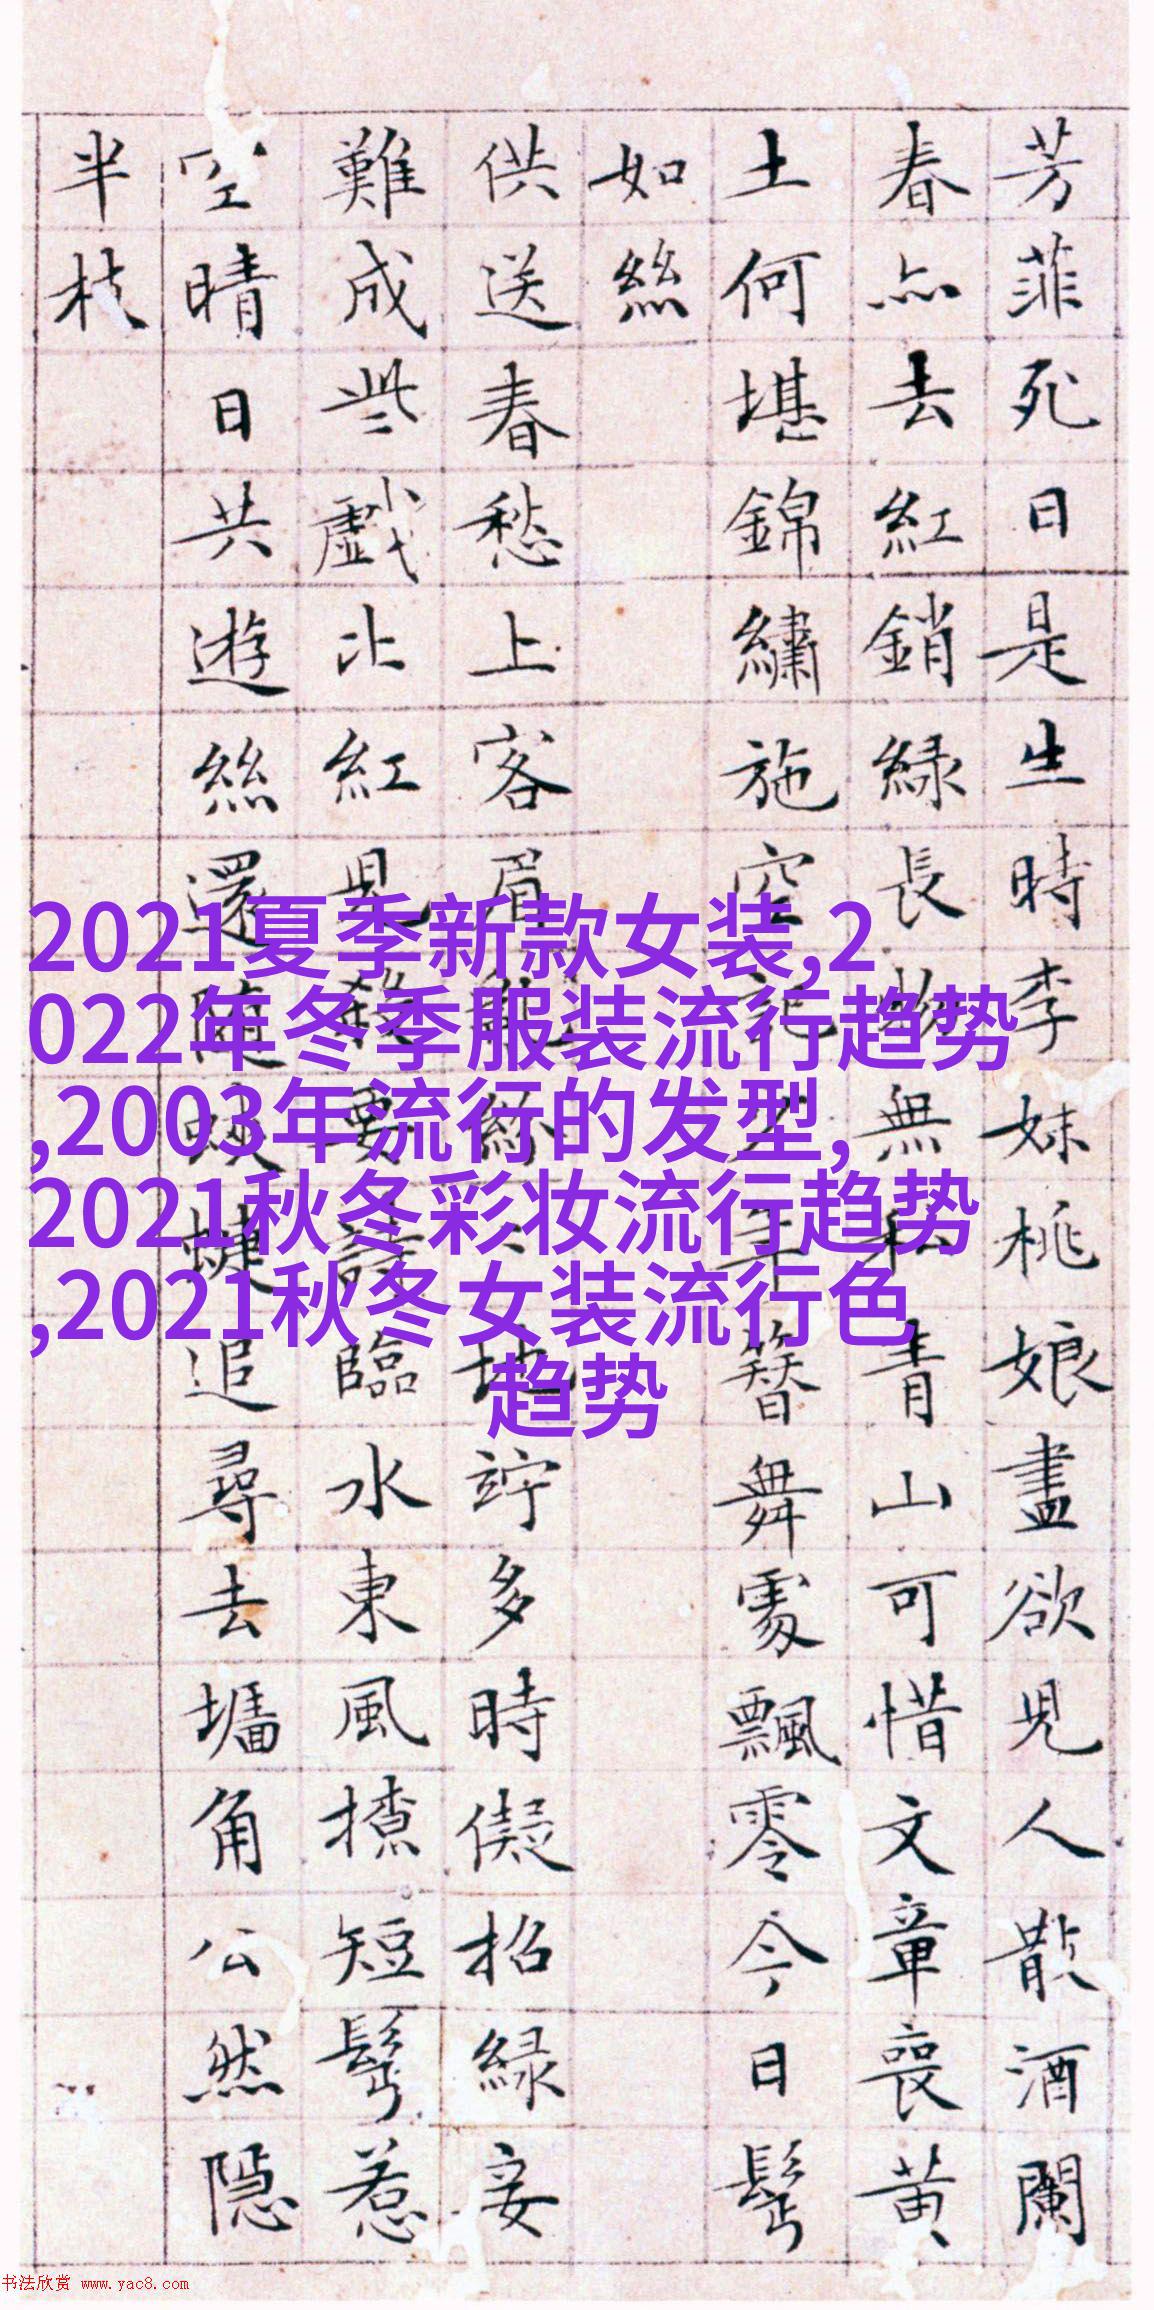 芳菲死日是生時李妹桃娘盡欲兒人散酒闌
春亦去紅銷綠長物無私青山可惜文章喪黃
土何堪錦繡施空記少年簪舞處飄零今日鬢
如絲
供送春愁上客眉亂紛々地竚多時儗招綠妾
難成些戲比紅兒殺要詩臨水東風撩短鬢惹
空晴日共遊絲還隨蛺蝶追尋去墻角公然隱
半枝
2021夏季新款女装,2
022年冬季服装流行趋势
,2003年流行的发型,
2021秋冬彩妆流行趋势
,2021秋冬女装流行色
趋势
书法欣赏 www.yac8.com